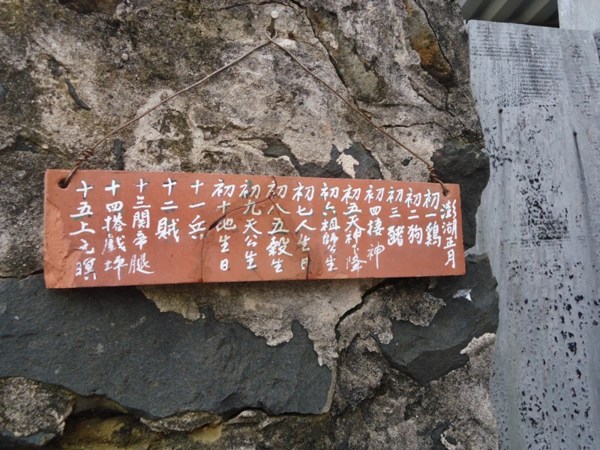 澎湖正月
初一鷄
初二狗
初三豬
初四接神
初五天神降
初六祖師生
初七人生日
初八五穀生
初九天公生
初十地生日
十一兵
十二賊
十三關帝腿
十四搭戲埤
十五上元暝